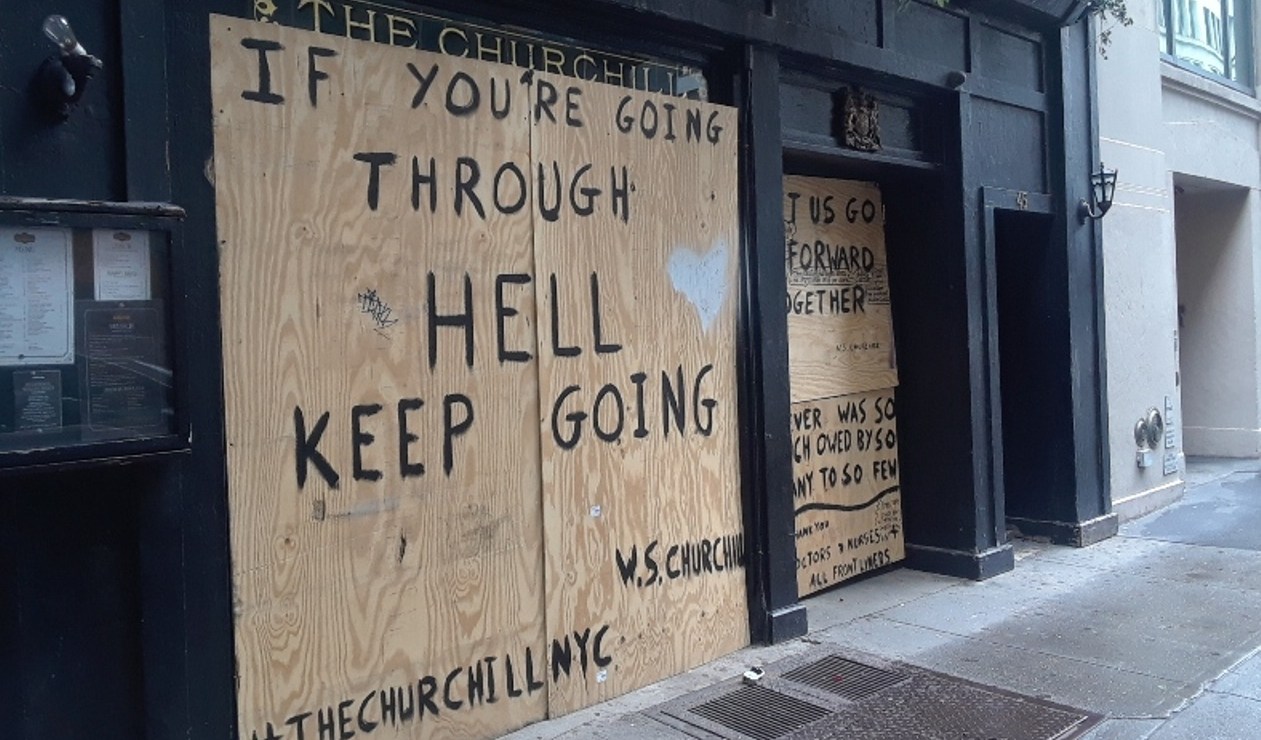 THE CHURCHILL
IF YOU'RE GOING
THROUGH
HELL
KEEP GOING
W.S. CHURCHILL
#THECHURCHILLNYC
T US GO
FORWARD
OGETHER
W.S. CHURCHILL
VER WAS SO
CH OWED BY SO
ANY TO SO FEW
HANK YOU
OCTORS & NURSES +
ALL FRONTLINERS
45